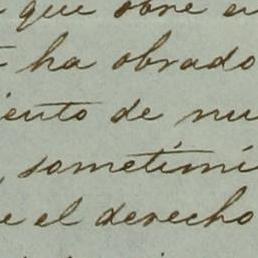 que obre en
ha obrado
iento de nu
, sometimi
e el derecho